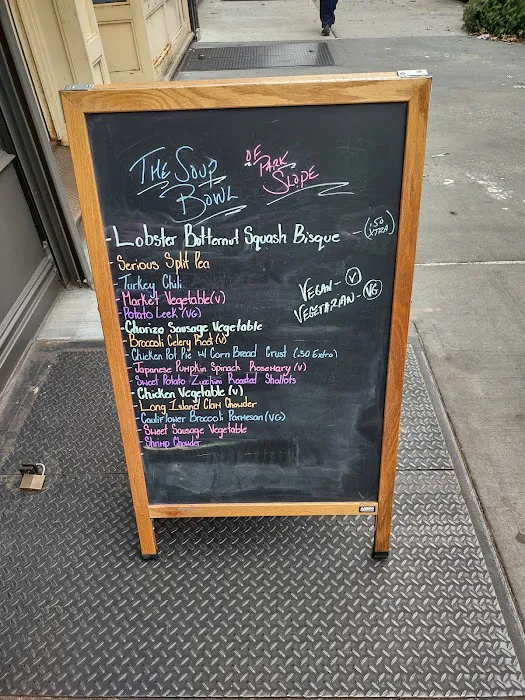 THE SOUP BOWL
OF PARK SLOPE
- Lobster Butternut Squash Bisque - (.50 XTRA)
- Serious Split Pea
- Turkey Chili
- Market Vegetable (V)
- Potato Leek (VG)
- Chorizo Sausage Vegetable
- Broccoli Celery Root (V)
- Chicken Pot Pie w/ Corn Bread Crust (.50 Extra)
- Japanese Pumpkin Spinach Rosemary (V)
- Sweet Potato Zucchini Roasted Shallots
- Chicken Vegetable (V)
- Long Island Clam Chowder
- Cauliflower Broccoli Parmesan (VG)
- Sweet Sausage Vegetable
- Shrimp Chowder
VEGAN - V
VEGETARIAN - VG